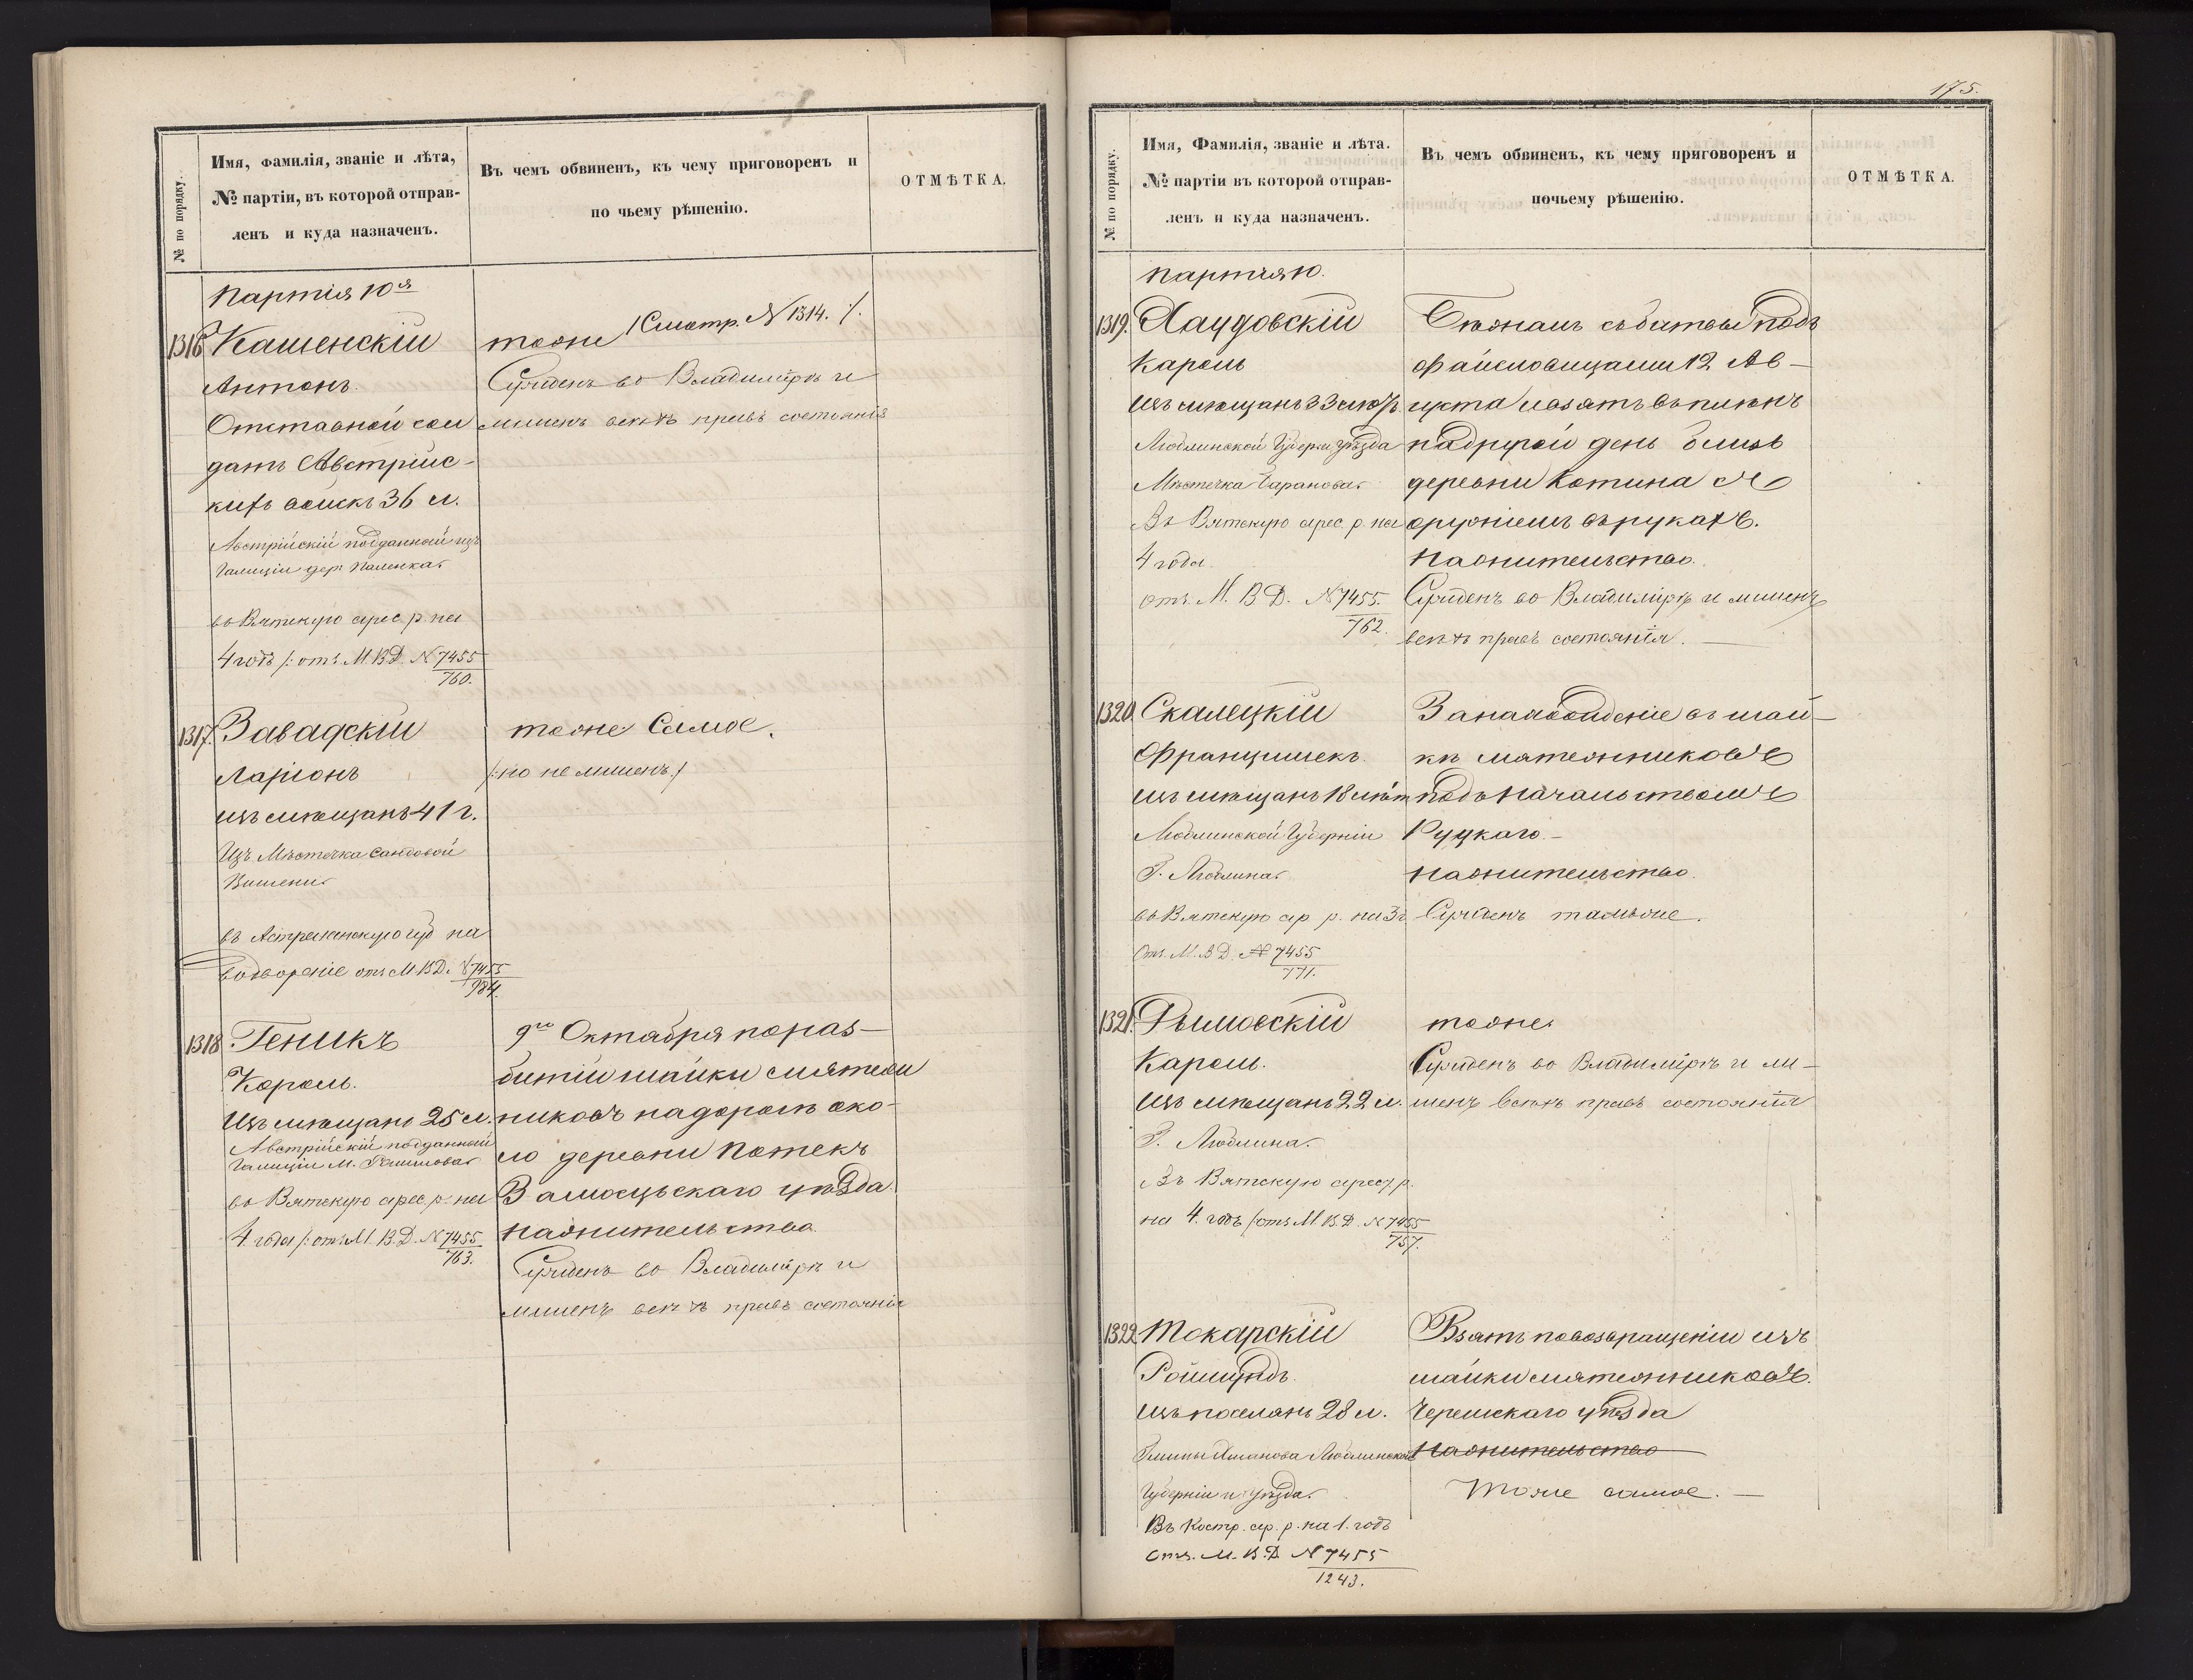 Имя, Фамилія, званіе и лѣта,
№ партіи, въ которой отправ-
ленъ и куда назначенъ.
№ по порядку.
Въ чемъ обвиненъ, къ чему приговоренъ и
по чьему рѣшенію.
ОТМѢТКА.
Партія 10я
1316 Кашенскій
Антонъ.
Отставной сол
датъ Австрійс-
кихъ войскъ 36 л.
Австрійскій подданный изъ
Галиціи дер.
во Вятскую арес. р. на
4 годъ /: отъ М. В. Д. № 7455
760.
тоже /Смотр. № 1314. /.
Сужденъ во Владимірѣ и
лишенъ всѣхъ правъ состоянія
1317. Завадскій
Ларіонъ
изъ мѣщанъ 41 г.
Изъ Мѣстечка Сандовой
Вишени
въ Астраханскую губ на
водвореніе отъ М. В. Д. № 7455
984.
тоже Самое.
/: но не лишенъ. /
1318 Геникъ
Кароль.
Изъ мѣщанъ 25 л.
Австрійскій подданный
Галиціи М.
во Вятскую арес. р. на
4 года /: отъ М. В. Д. № 7455
763.
9го Октября по раз-
битіи шайки мятеж
никовъ на дорогѣ око-
ло деревни Потекъ
Замосцьскаго уѣзда
На жительство
Сужденъ во Владимірѣ и
лишенъ всѣхъ правъ состоянія
175.
№ по порядку.
Имя, Фамилія, званіе и лѣта.
№ партіи въ которой отправ-
ленъ и куда назначенъ.
Въ чемъ обвиненъ, къ чему приговоренъ и
почьему рѣшенію.
ОТМѢТКА.
Партія 10.
1319.
Кароль
Изъ мѣщанъ 33 лѣтъ
Люблинской Губерн. уѣзда
Мѣстечка Баранова
Въ Вятскую арес. р. на
4 года
отъ. М. В. Д. № 7455.
762.
Бѣжалъ съ битвы подъ
Файславицами 12 Ав-
густа и взятъ въ плѣнъ
на другой день близь
деревни Котина съ
оружіемъ въ рукахъ.
На жительство.
Сужденъ во Владимірѣ и лишенъ
всѣхъ правъ состоянія. —
1320. Скалецкій
Францишекъ.
изъ мѣщанъ 18 лѣт
Люблинской Губерніи
Г. Люблина
въ Вятскую ар. р. на 3 г.
Отъ. М. В. Д. № 7455
771.
За нахожденіе въ шай-
кѣ мятежниковъ
подъ начальствомъ
Руцкаго. —
На жительство.
Сужденъ тамъже.
1321. Рымовскій
Кароль.
Изъ мѣщанъ 22 л.
Г. Люблина.
Въ Вятскую арест. р.
на 4. годъ /: отъ М. В. Д. № 7455
757.
тоже.
Сужденъ во Владимірѣ и ли-
шенъ всѣхъ правъ состоянія
1322 Токарскій
Роймундъ.
изъ поселянъ 28 л.
Гмины Люблинской
Губерніи и уѣзда.
Въ Костр. ар. р. на 1. годъ
отъ. М. В. Д. № 7455
1243.
Взятъ по возвращеніи изъ
шайки мятежниковъ.
уѣзда
На жительство
Тоже самое. —